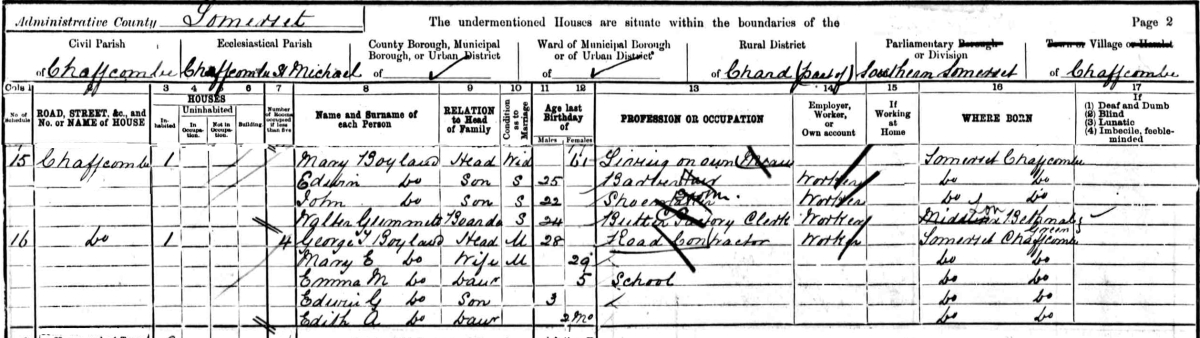 Administrative County Somerset The undermentioned Houses are situate within the boundaries of the Page 2
Civil Parish Ecclesiastical Parish County Borough, Municipal Borough, or Urban District Ward of Municipal Borough or of Urban District Rural District Parliamentary Borough or Division Town or Village or Hamlet
of Chaffcombe of Chaffcombe St Michael of of of Chard (part of) of Southern Somerset of Chaffcombe
Cols 1 2 3 4 5 6 7 8 9 10 11 12 13 14 15 16 17
No. of Schedule ROAD, STREET, &c., and No. or NAME of HOUSE HOUSES Inhabited Uninhabited In Occupation. Not in Occupation. Building. Number of Rooms occupied if less than five Name and Surname of each Person RELATION to Head of Family Condition as to Marriage Age last Birthday of Males Females PROFESSION OR OCCUPATION Employer, Worker, or Own account If Working at Home WHERE BORN If (1) Deaf and Dumb (2) Blind (3) Lunatic (4) Imbecile, feeble-minded
15 Chaffcombe 1 Mary Boyland Head Wid 61 Living on own Means Somerset Chaffcombe
Edwin Do Son S 25 Barber Worker Do Do
John Do Son S 22 Shoemaker Worker Do Do
Walter Boarder S 24 Butter Factory Clerk Worker Bethnal Green
16 Do 1 4 George T Boyland Head M 28 Road Contractor Worker Somerset Chaffcombe
Mary E Do Wife M 29 Do Do
Emma M Do Daur 5 School Do Do
Edwin G Do Son 3 Do Do
Edith A Do Daur 2 Mo Do Do